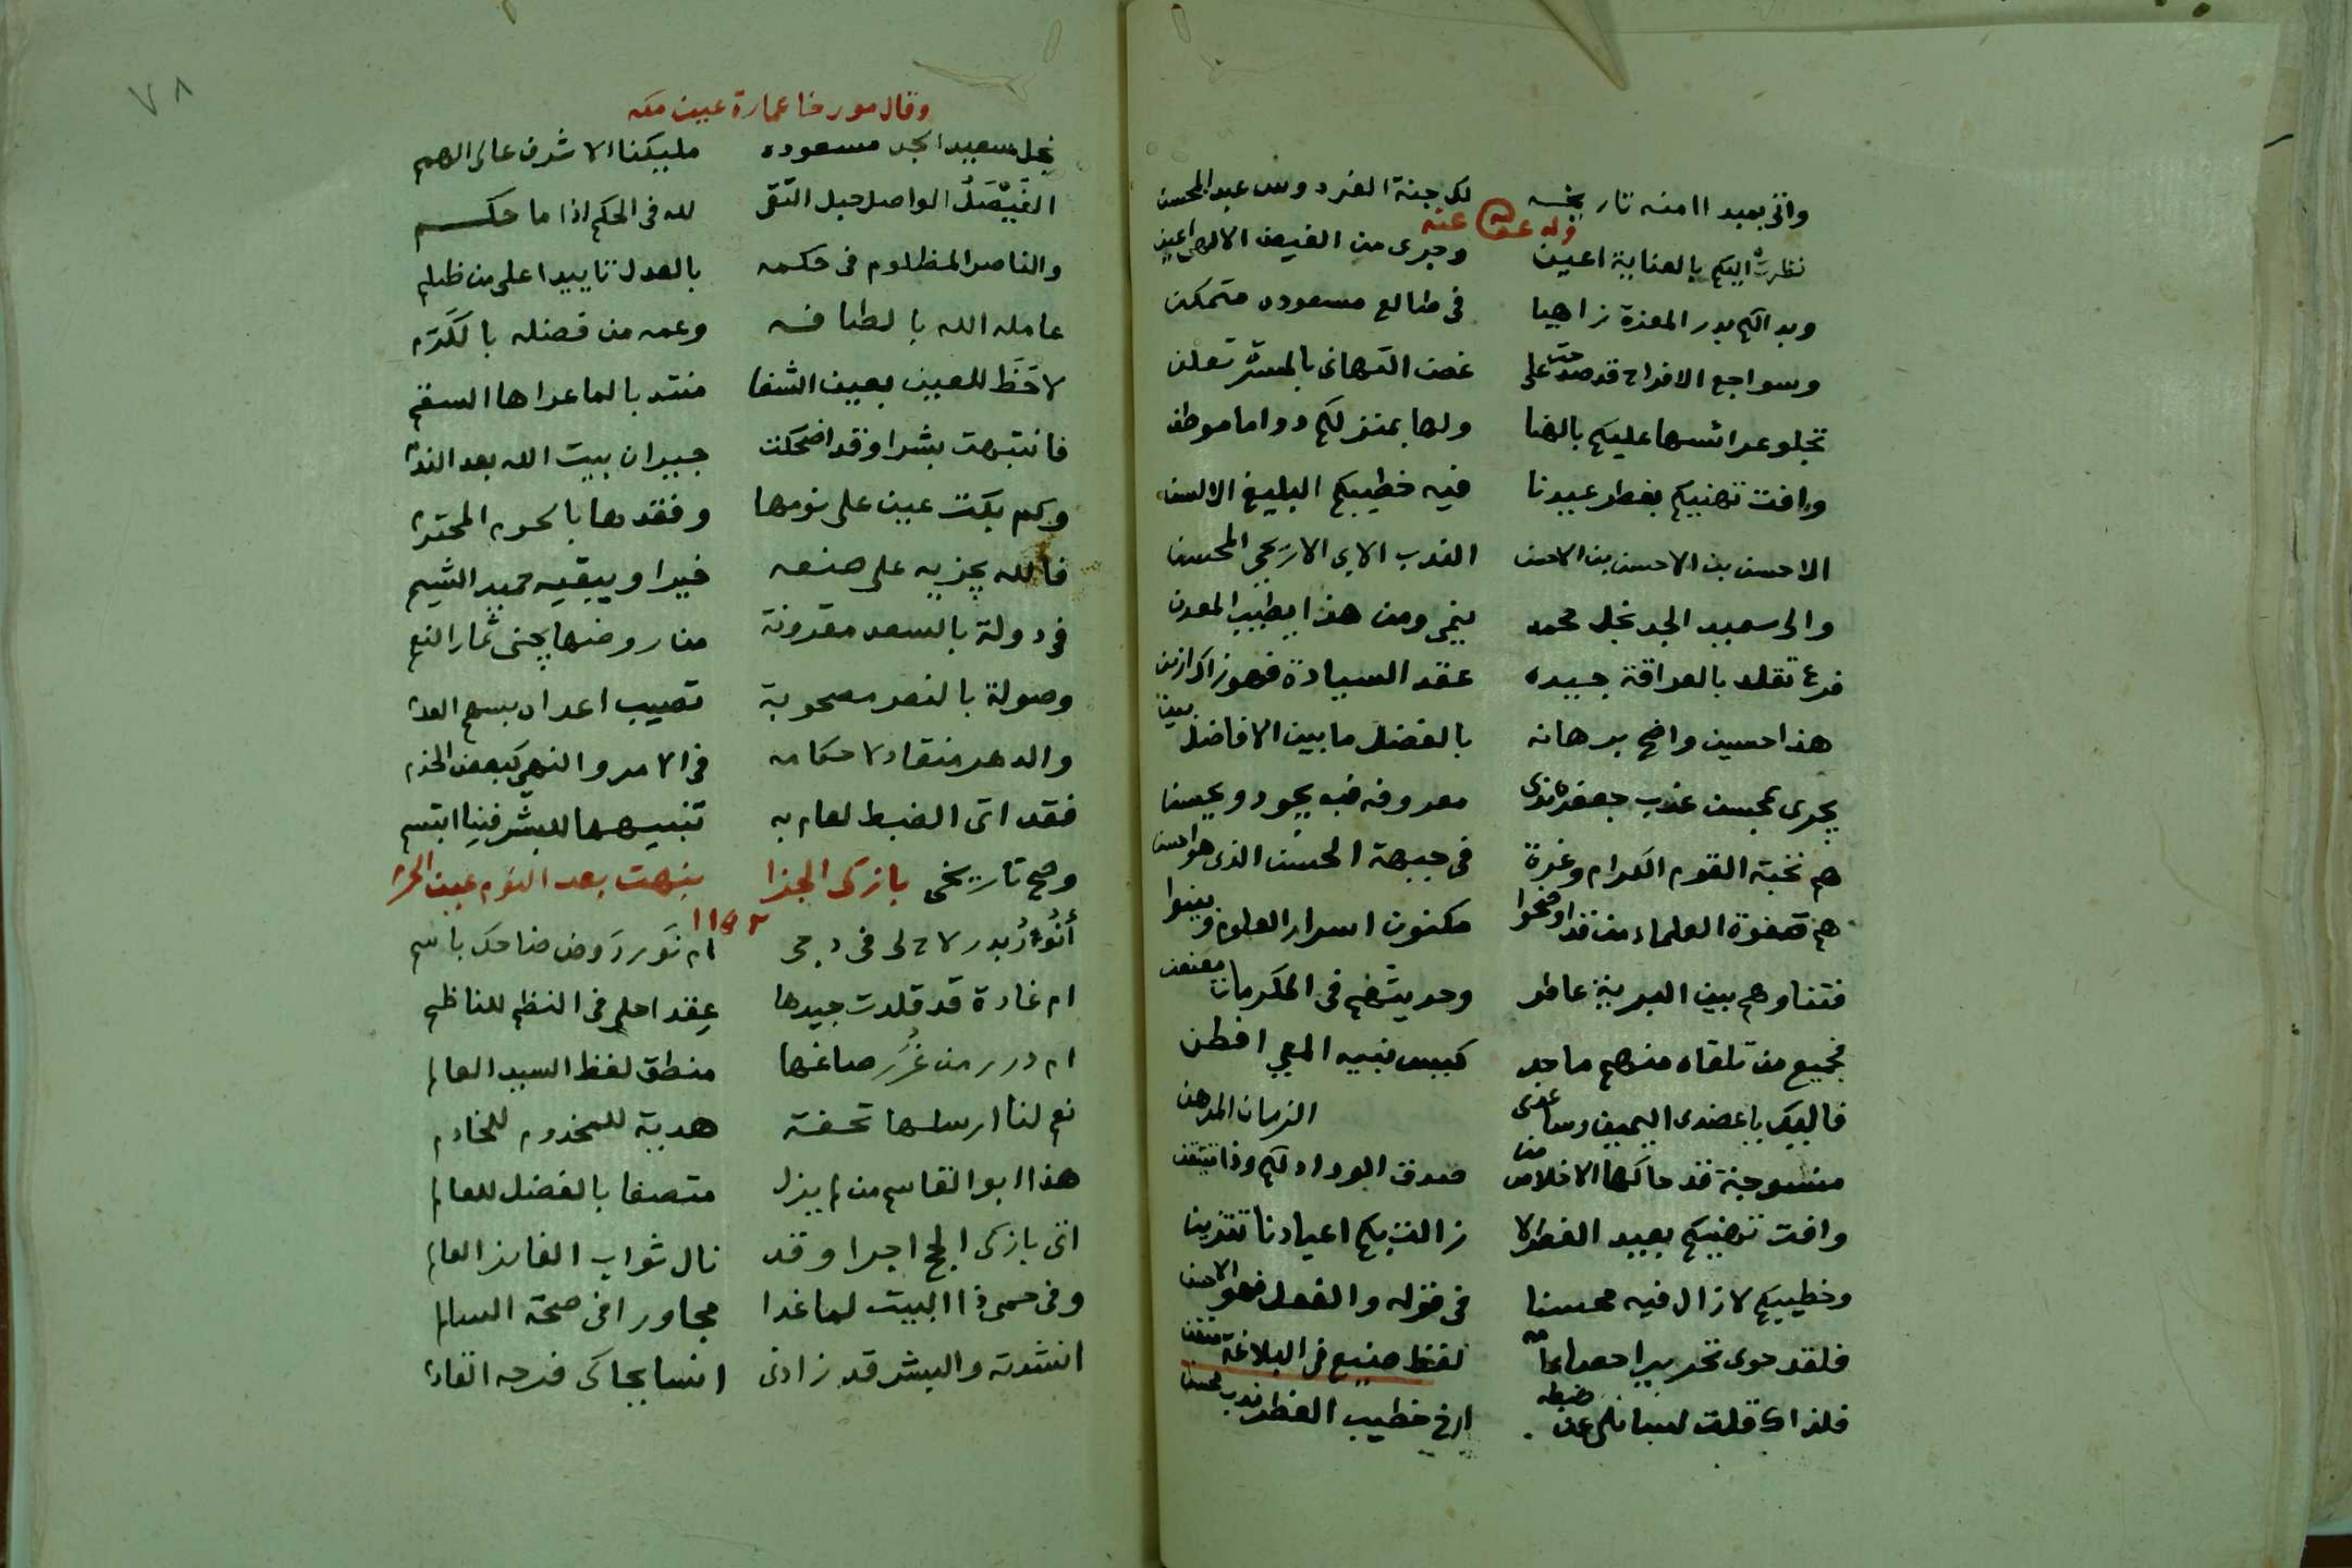 واتى بعيد اامنه تاريخه لك جنة الفردوس عبد المحسن
وله عفى الله عنه
نظرت اليكم بالعناية اعين وجرى من الفيض الالهي اعين
وبدالكم بدر المعزة زاهيا في طالع مسعوده متمكن
وسواجع الافراح قد صدحت على غصن التهاني بالمسرة تعلن
تجلو عرائسها عليكم بالهنا ولها بمنزلكم دواما موطن
وافت تهنيكم بفطر عيدنا فيه خطيبكم البليغ الالسن
الاحسن بن الاحسن بن الاحسن الندب الابي الاريحي المحسن
والى سعيد الجد نجل محمد ينمى ومن هذا يطيب المعدن
فرع تقلد بالعراقة جيده عقد السيادة فهو زاك ازين
هذا حسين واضح برهانه بالفضل ما بين الافاضل بين
يجرى بمحسن عذب جعفر ندى معروفه فيه يجود ويحسن
هم نخبة القوم الكرام وغرة في جبهة الحسن الذى هو احسن
هم صفوة العلماء من قد اوضحوا مكنون اسرار العلوم وبينوا
فثناوهم بين البرية عاطر وحديثهم في المكرمات معنعن
فجميع من تلقاه منهم ماجد كيس نبيه المعي افطن
فاليك يا عضدى اليمين وساعدى الزمان المدهن
منسوجة قد حاكها الاخلاص من صدق الوداد لكم وذا متيقن
وافت تهنيكم بعيد الفطر لا زالت بكم اعيادنا تتزين
وخطيبكم لازال فيه محسنا في قوله والفعل فهو الاحسن
فلقد حوى تحرير احصاء لفظ صنيع في البلاغة متقن
فلذاك قلت لسائلى عن ضبطه ارخ خطيب الفطر ندب محسن
٧٨
وقال مورخا عمارة عين مكه
نجل سعيد الجد مسعوده مليكنا الاشرف عالى الهمم
الفيصل الواصل حبل التقى لله في الحكم اذا ما حكم
والناصر المظلوم في حكمه بالعدل تاييدا على من ظلم
عامله الله بالطافه وعمه من فضله بالكرم
لاحظ للعين بعين الشفا منتدبا لما عراها السقم
فانتبهت بشرا وقد اضحكت جيران بيت الله بعد الندم
وكم بكت عين على نومها وفقدها بالحرم المحترم
فالله يجزيه على صنعه خيرا ويبقيه حميد الشيم
في دولة بالسعد مقرونة من روضها يجنى ثمار النعم
وصولة بالنصر مصحوبة تصيب اعداه بسهم العدم
والدهر منقاد لاحكامه في الامر والنهي كبعض الخدم
فقد اتى الضبط لعام به تنبيهها للبشر فينا ابتسم
وصح تاريخى بازكى الجزا نبهت بعد النوم عين الحرم
أنور بدر لاح لى في دجى ام نور روض ضاحك باسم
ام غادة قد قلدت جيدها عقد احلي في النظم للناظم
ام درر من غرر صاغها منطق لفظ السيد العالم
نعم لنا ارسلها تحفة هدية للمخدوم للخادم
هذا ابو القاسم من لم يزل متصفا بالفضل للعالم
اتى بازكى الحج اجرا وقد نال ثواب الفايز الغانم
وفي حمى ذا البيت لما غدا مجاورا في صحة السالم
انشدته والبشر قد زادنى انسا يحاكى فرحه القادم